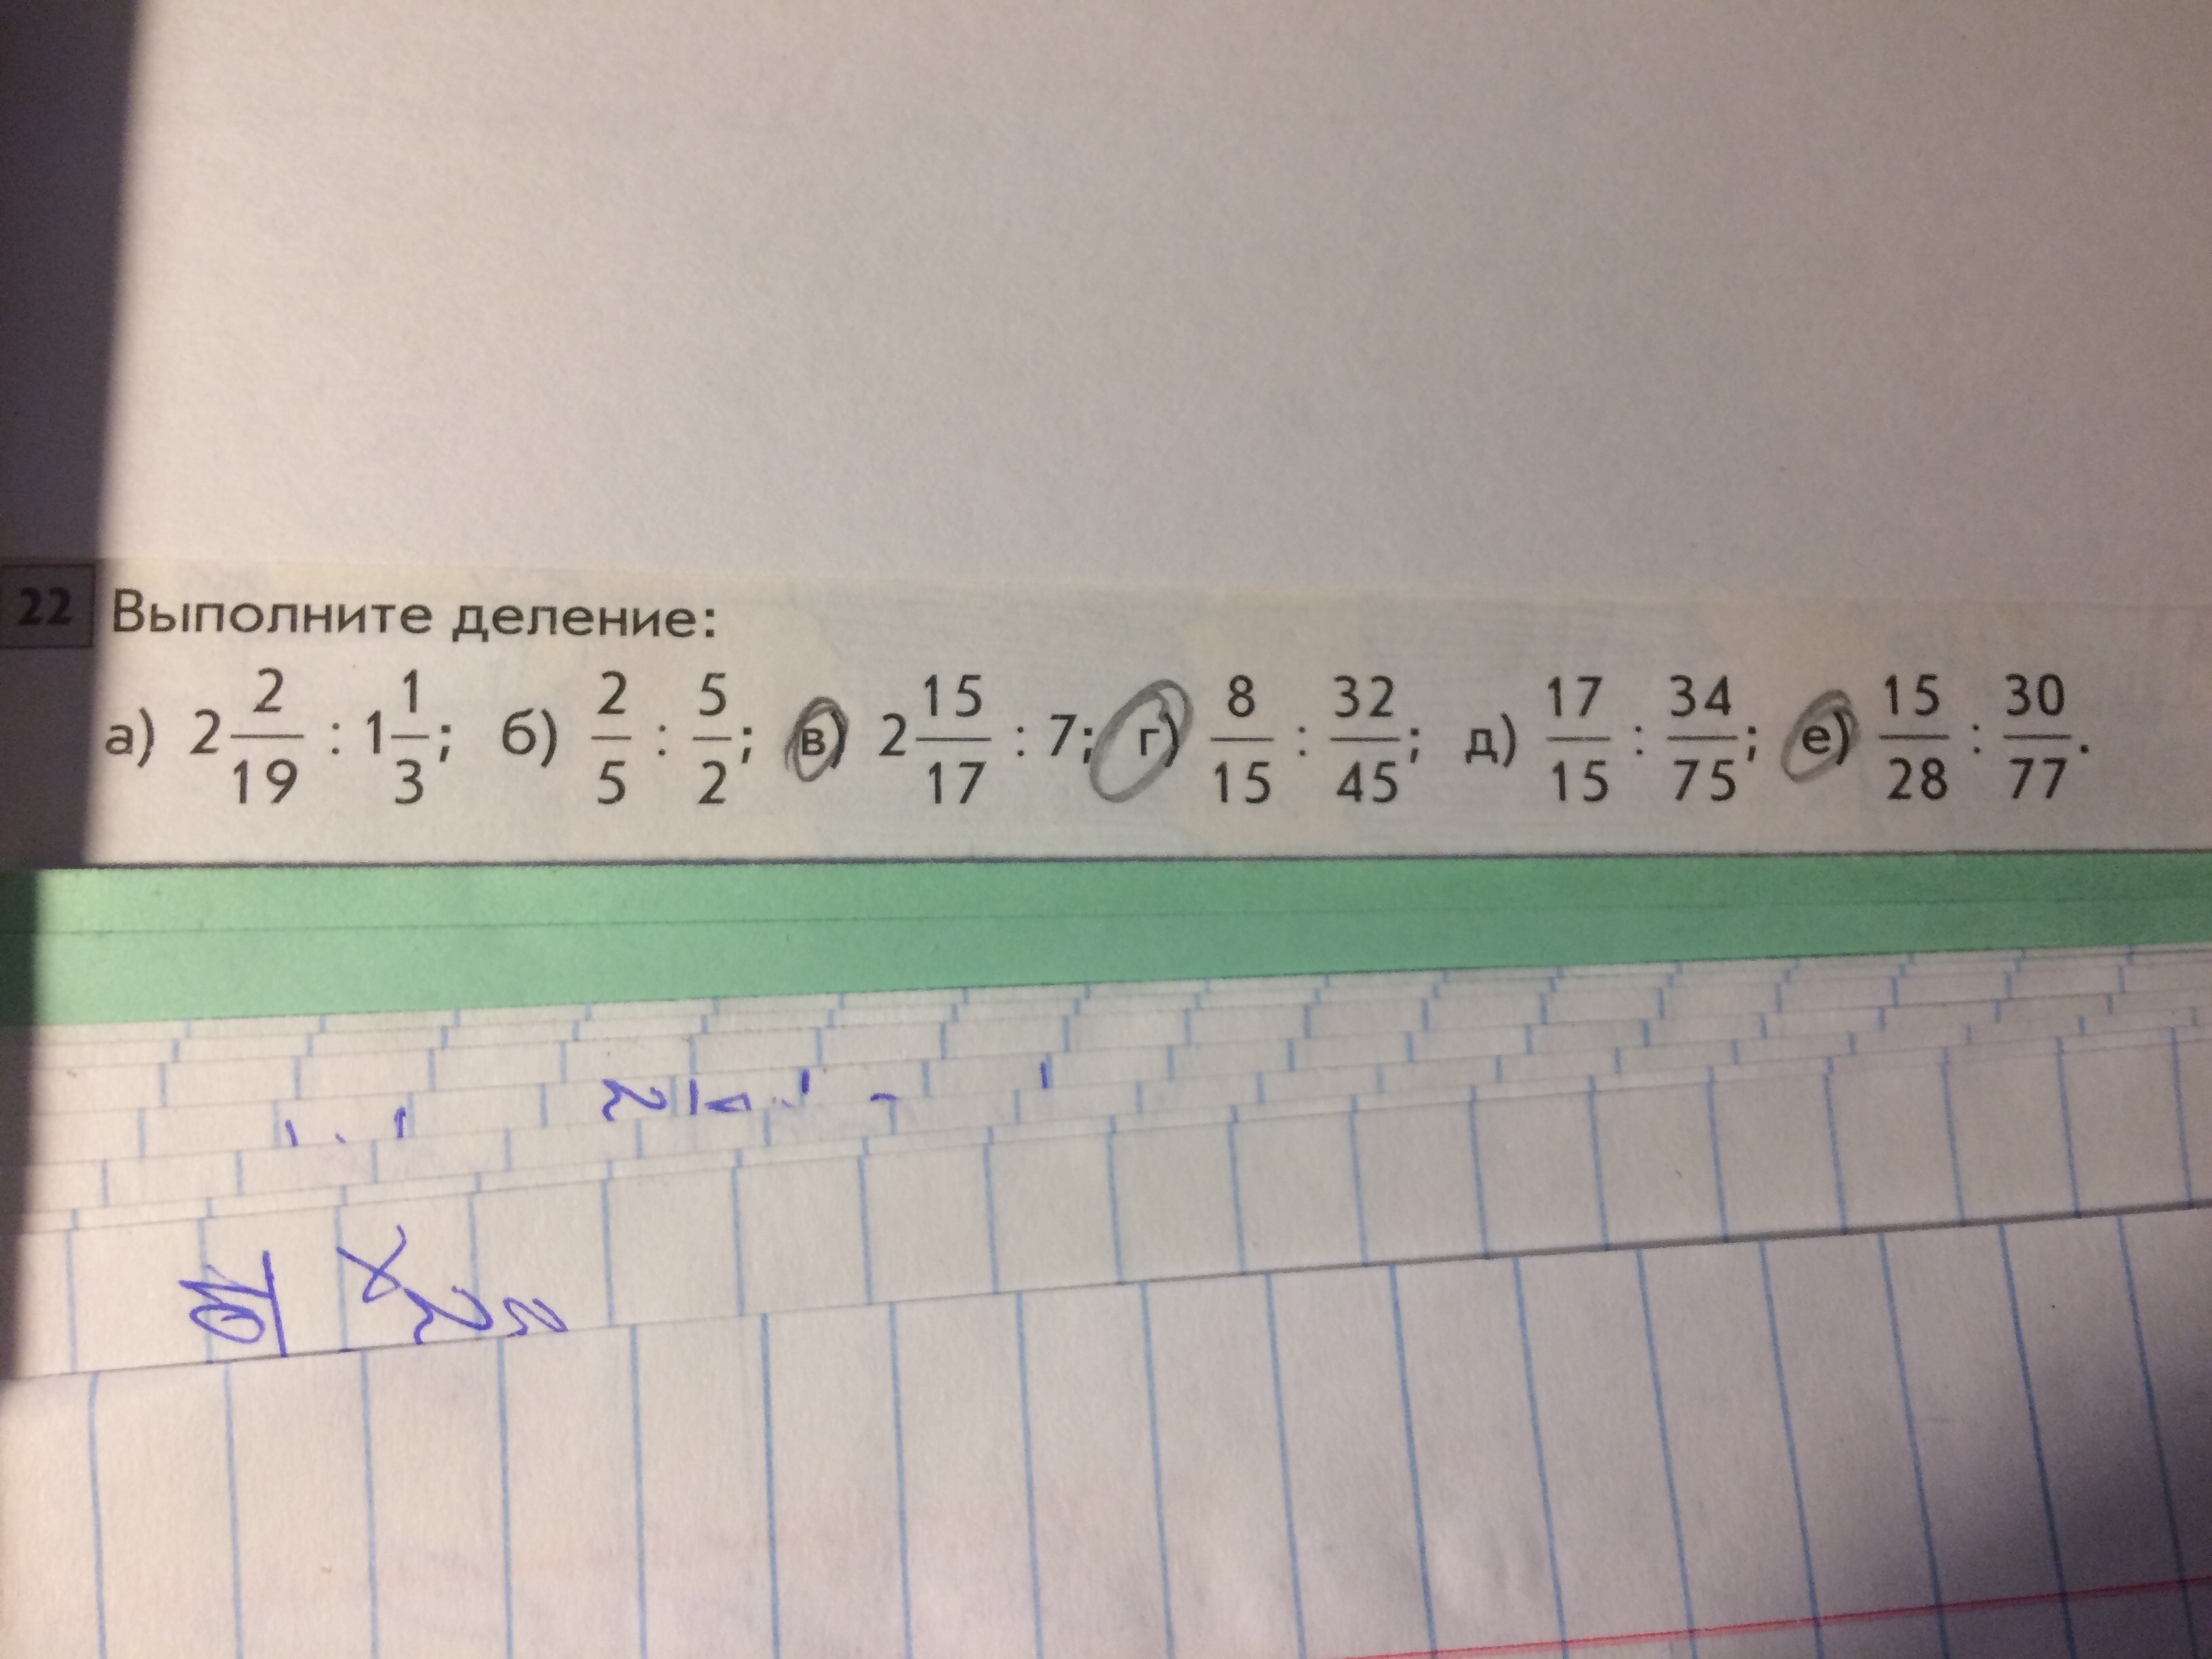 22 Выполните деление:
а) 2 2/19 : 1 1/3; б) 2/5 : 5/2; в) 2 15/17 : 7; г) 8/15 : 32/45; д) 17/15 : 34/75; е) 15/28 : 30/77.